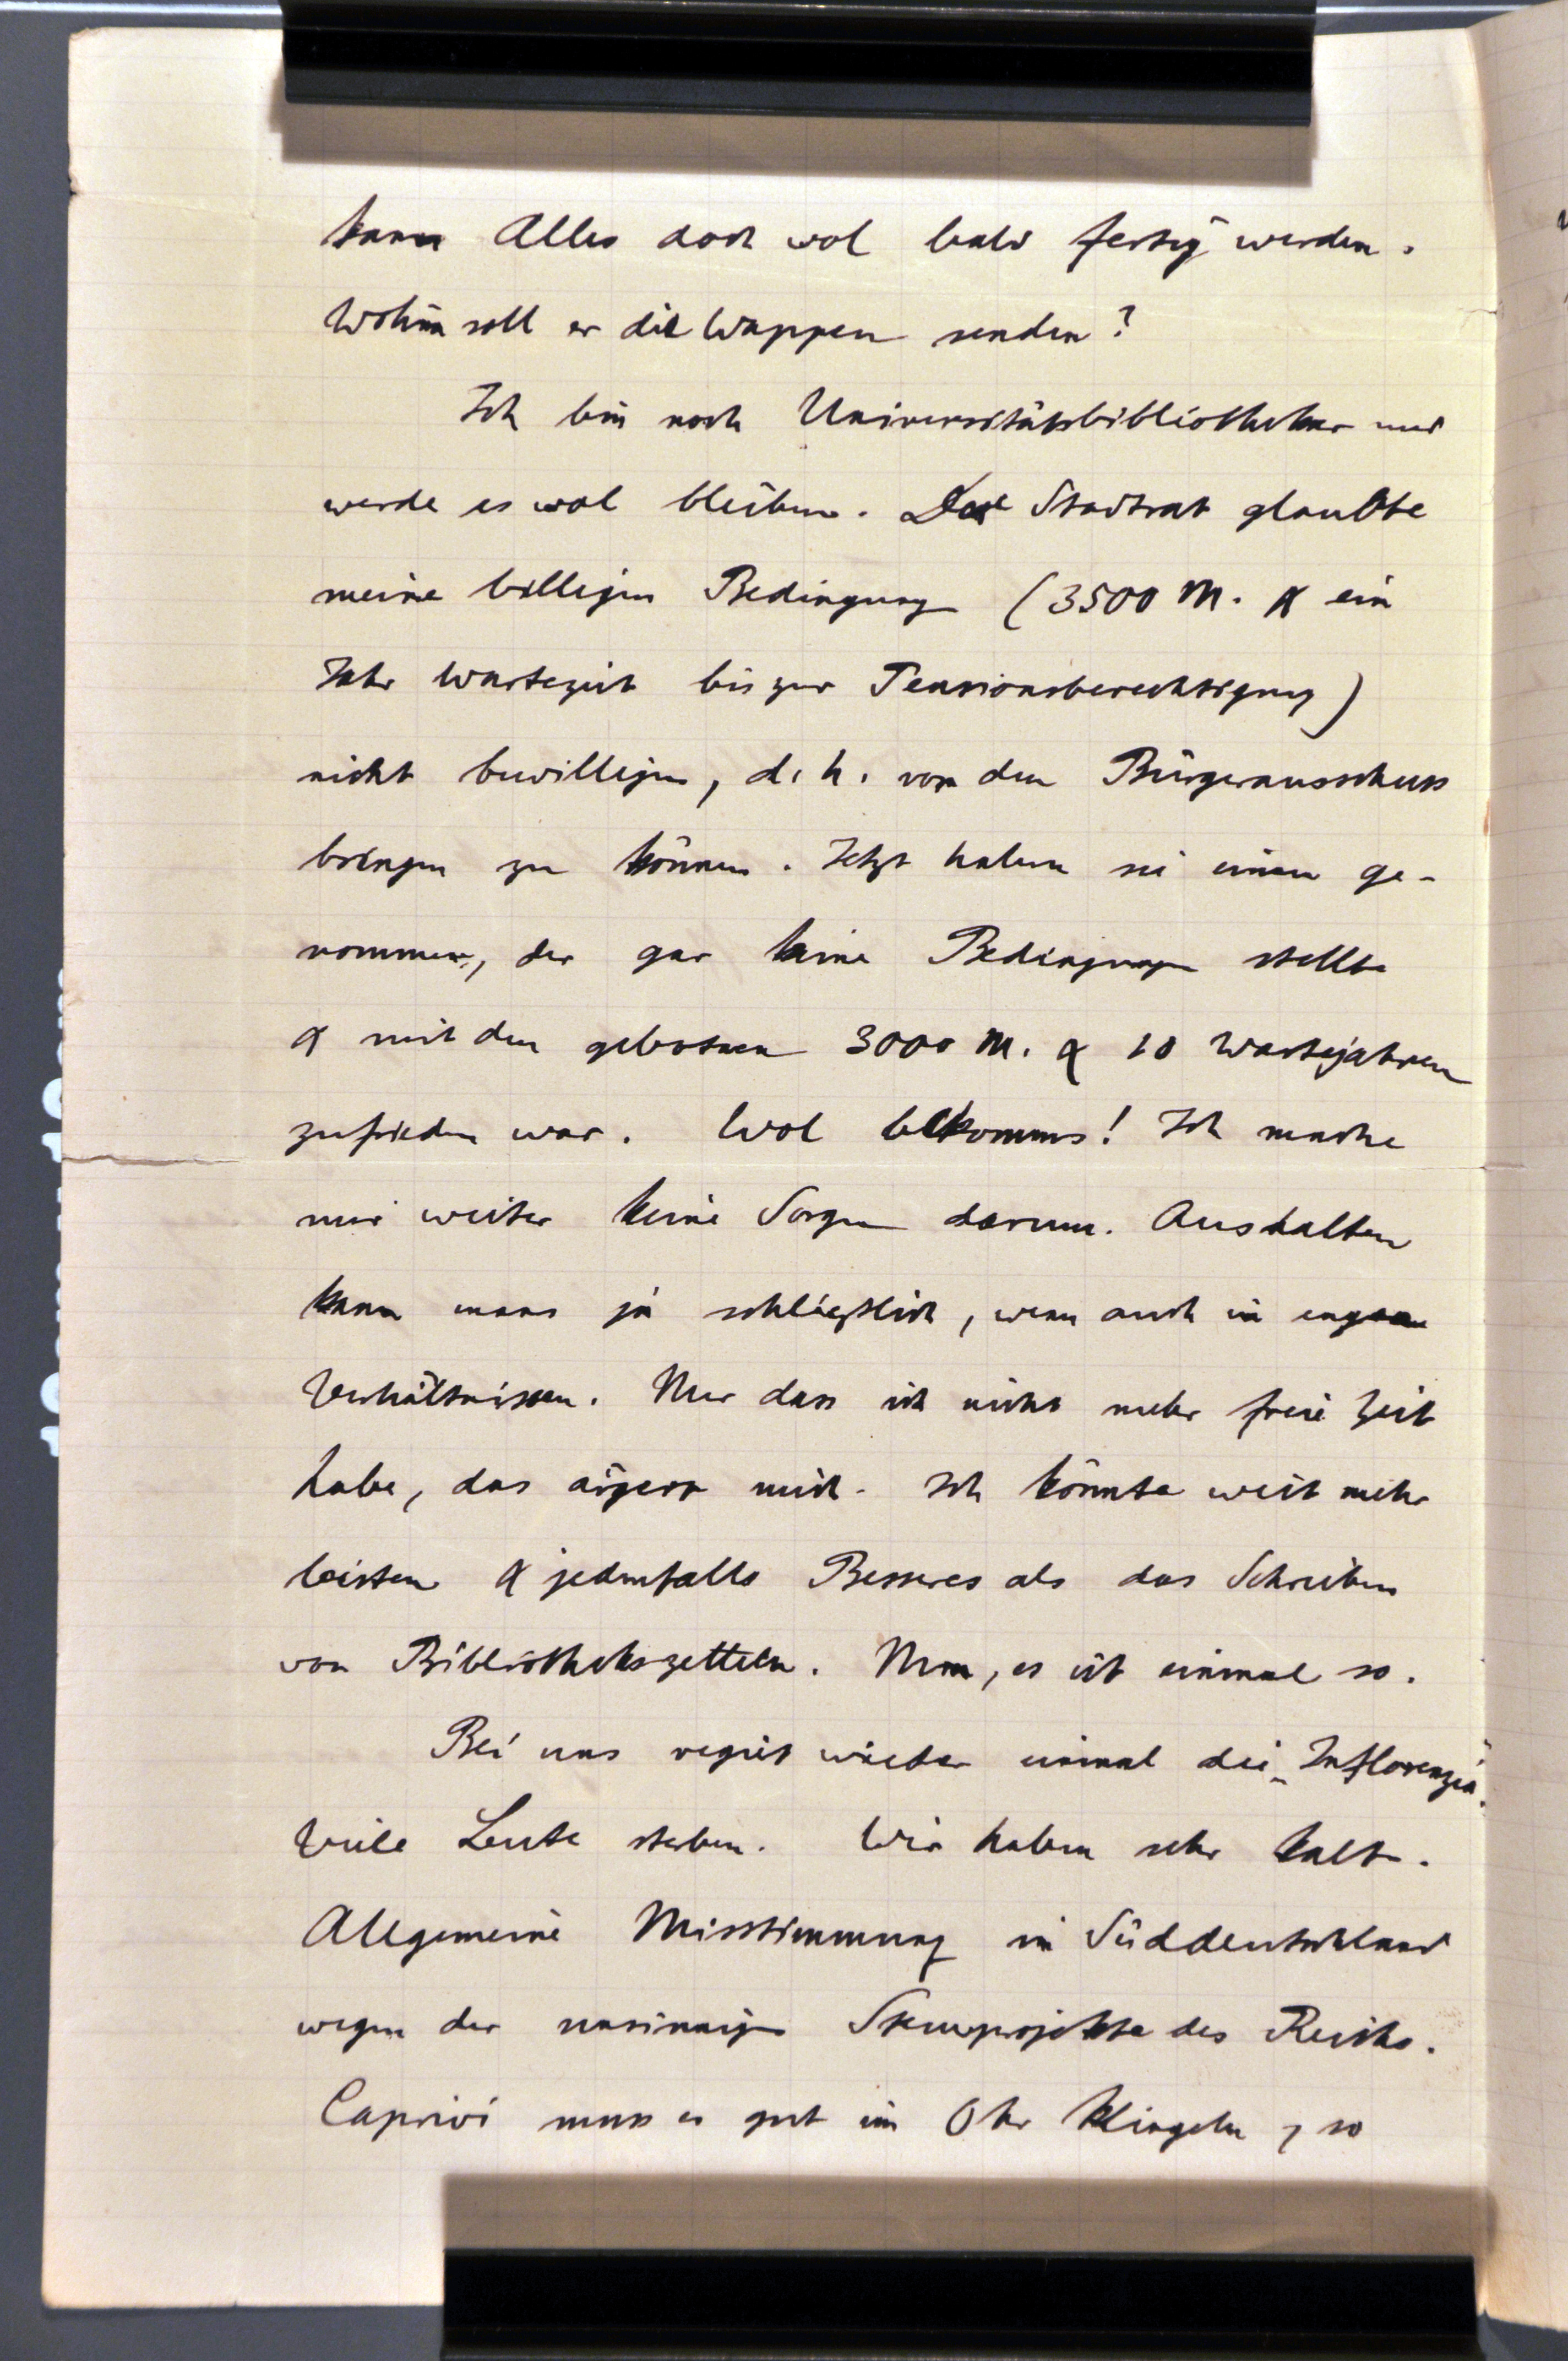 kann Alles doch wol bald fertig werden.
Wohin soll er die Wappen senden?
Ich bin noch Universitätsbibliothekar und
werde es wol bleiben. Der Stadtrat glaubte
meine billigen Bedingungen (3500 M. & ein
Jahr Wartezeit bis zur Pensionsberechtigung)
nicht bewilligen, d. h. vor den Bürgerausschuss
bringen zu können. Jetzt haben sie einen ge-
nommen, der gar keine Bedingungen stellte
& mit den gebotnen 3000 M. & 10 Wartejahren
zufrieden war. Wol bekomms! Ich mache
mir weiter keine Sorgen darum. Aushalten
kann mans ja schließlich, wenn auch in engen
Verhältnissen. Nur dass ich nicht mehr freie Zeit
habe, das ärgert mich. Ich könnte weit mehr
leisten & jedenfalls Besseres als das Schreiben
von Bibliothekszetteln. Nun, es ist einmal so.
Bei uns regirt wieder einmal die „Inflorenzia".
Viele Leute sterben. Wir haben sehr kalt.
Allgemeine Misstimmung in Süddeutschland
wegen der unsinnigen Steuerprojekte des Reichs.
Caprivi muss es gut im Ohr klingeln, so